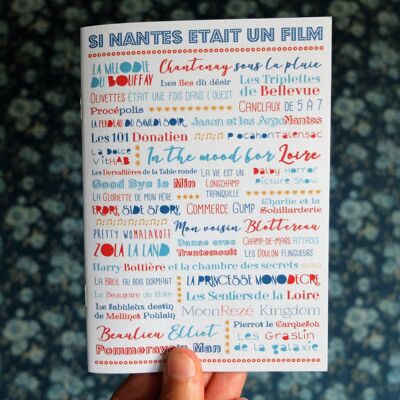 SI NANTES ETAIT UN FILM
LA MELODIE DU BOUFFAY
Chantenay sous la pluie
Les îles du désir
Les Triplettes de Bellevue
OLIVETTES ÉTAIT UNE FOIS DANS L'OUEST
Procépolis
CANCLAUX DE 5 À 7
LA PERDEAU DU SAMEDI SOIR
Jason et les ArgoNantes
Les 101 Donatien
POCAHONTALENSAC
LA DOLCE VITHAB
In the mood for Loire
Les Dervallières de la Table ronde
Good Bye le Min
LA VIE EST UN LONGCHAMP TRANQUILLE
Dalby Horror Picture Show
LA GLORIETTE DE MON PÈRE
ERDRE SIDE STORY
COMMERCE GUMP
Charlie et la Souillarderie
PRETTY WOMALAKOFF
Mon voisin Blottereau
ZOLA LA LAND
Danse avec Trentemoult
CHAMP-DE-MARS ATTACKS
LES DOULON FLINGUEURS
Harry Bottière et la chambre des secrets
LA BREIL AU BOIS DORMANT
LA PRINCESSE MONODECRE
Le Beaujoire de
Les Sentiers de la Loire
Le fabuleux destin de Mellinet Poulain
MoonRezé Kingdom
Beaulieu Elliot
Pierrot le Carquefou
Les Graslin de la galaxie
Pommeraye's Man